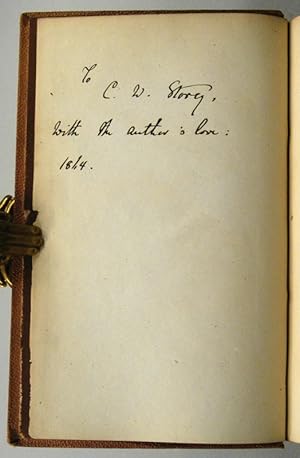 To
C. W. Storey,
with the author's love:
1864.